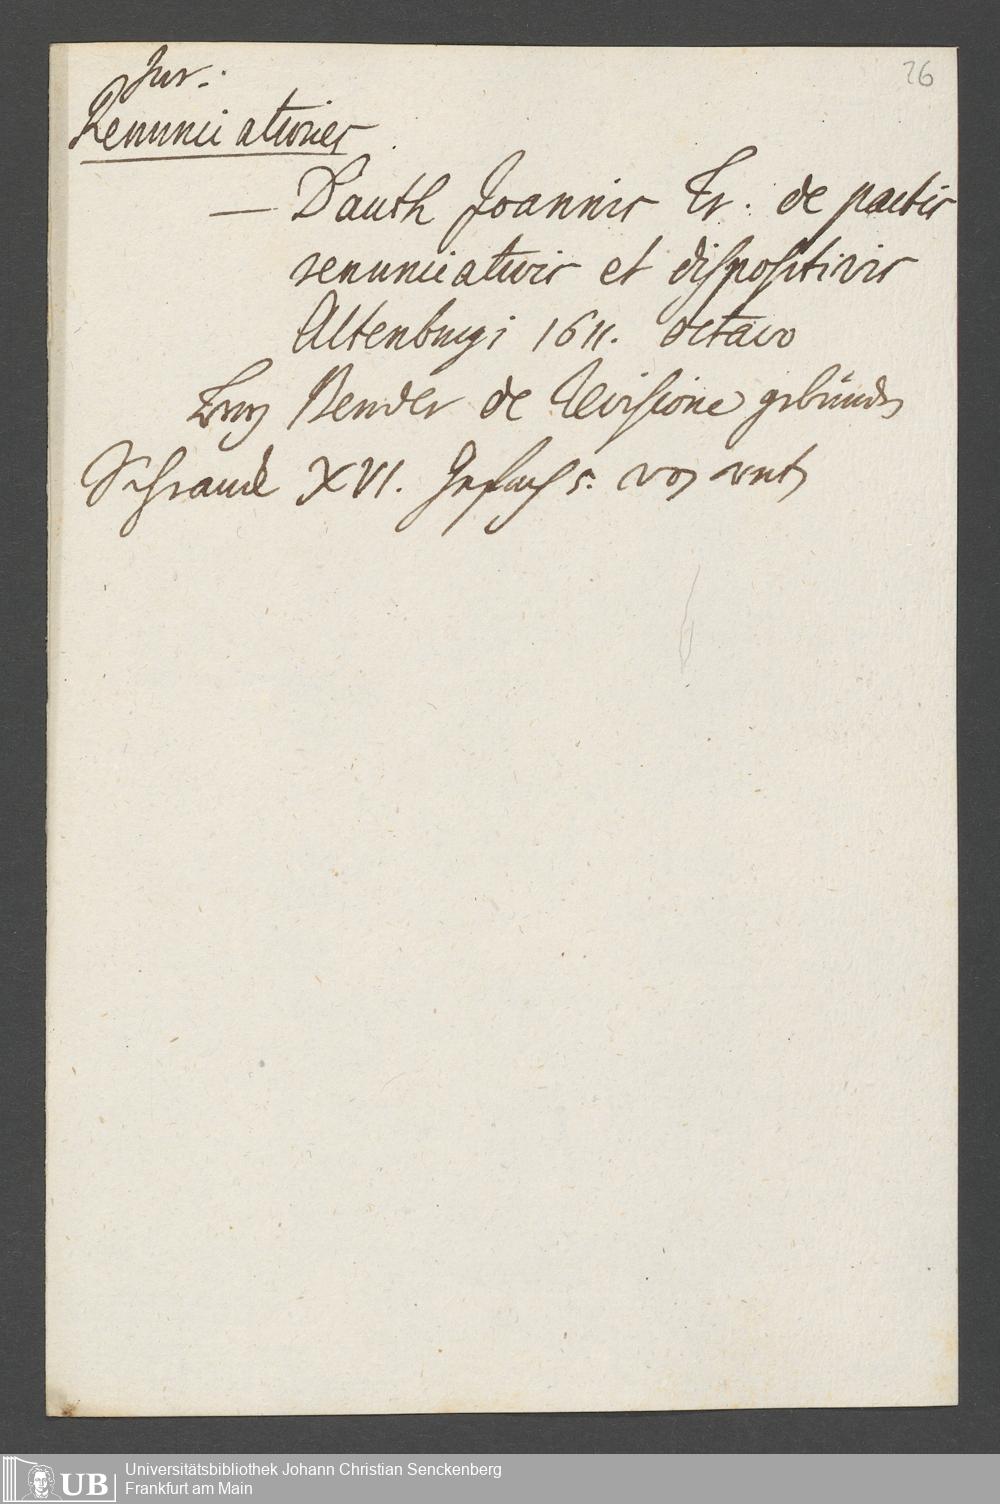 Jur:
26
Renunciationes
— Dauth Joannis Tr. de pactis
renunciativis et dispositivis
Altenburgi 1611. octavo
Bender de Revisione gebunden
Schranck XVI. Gefach 5. von unten
UB
Universitätsbibliothek Johann Christian Senckenberg
Frankfurt am Main